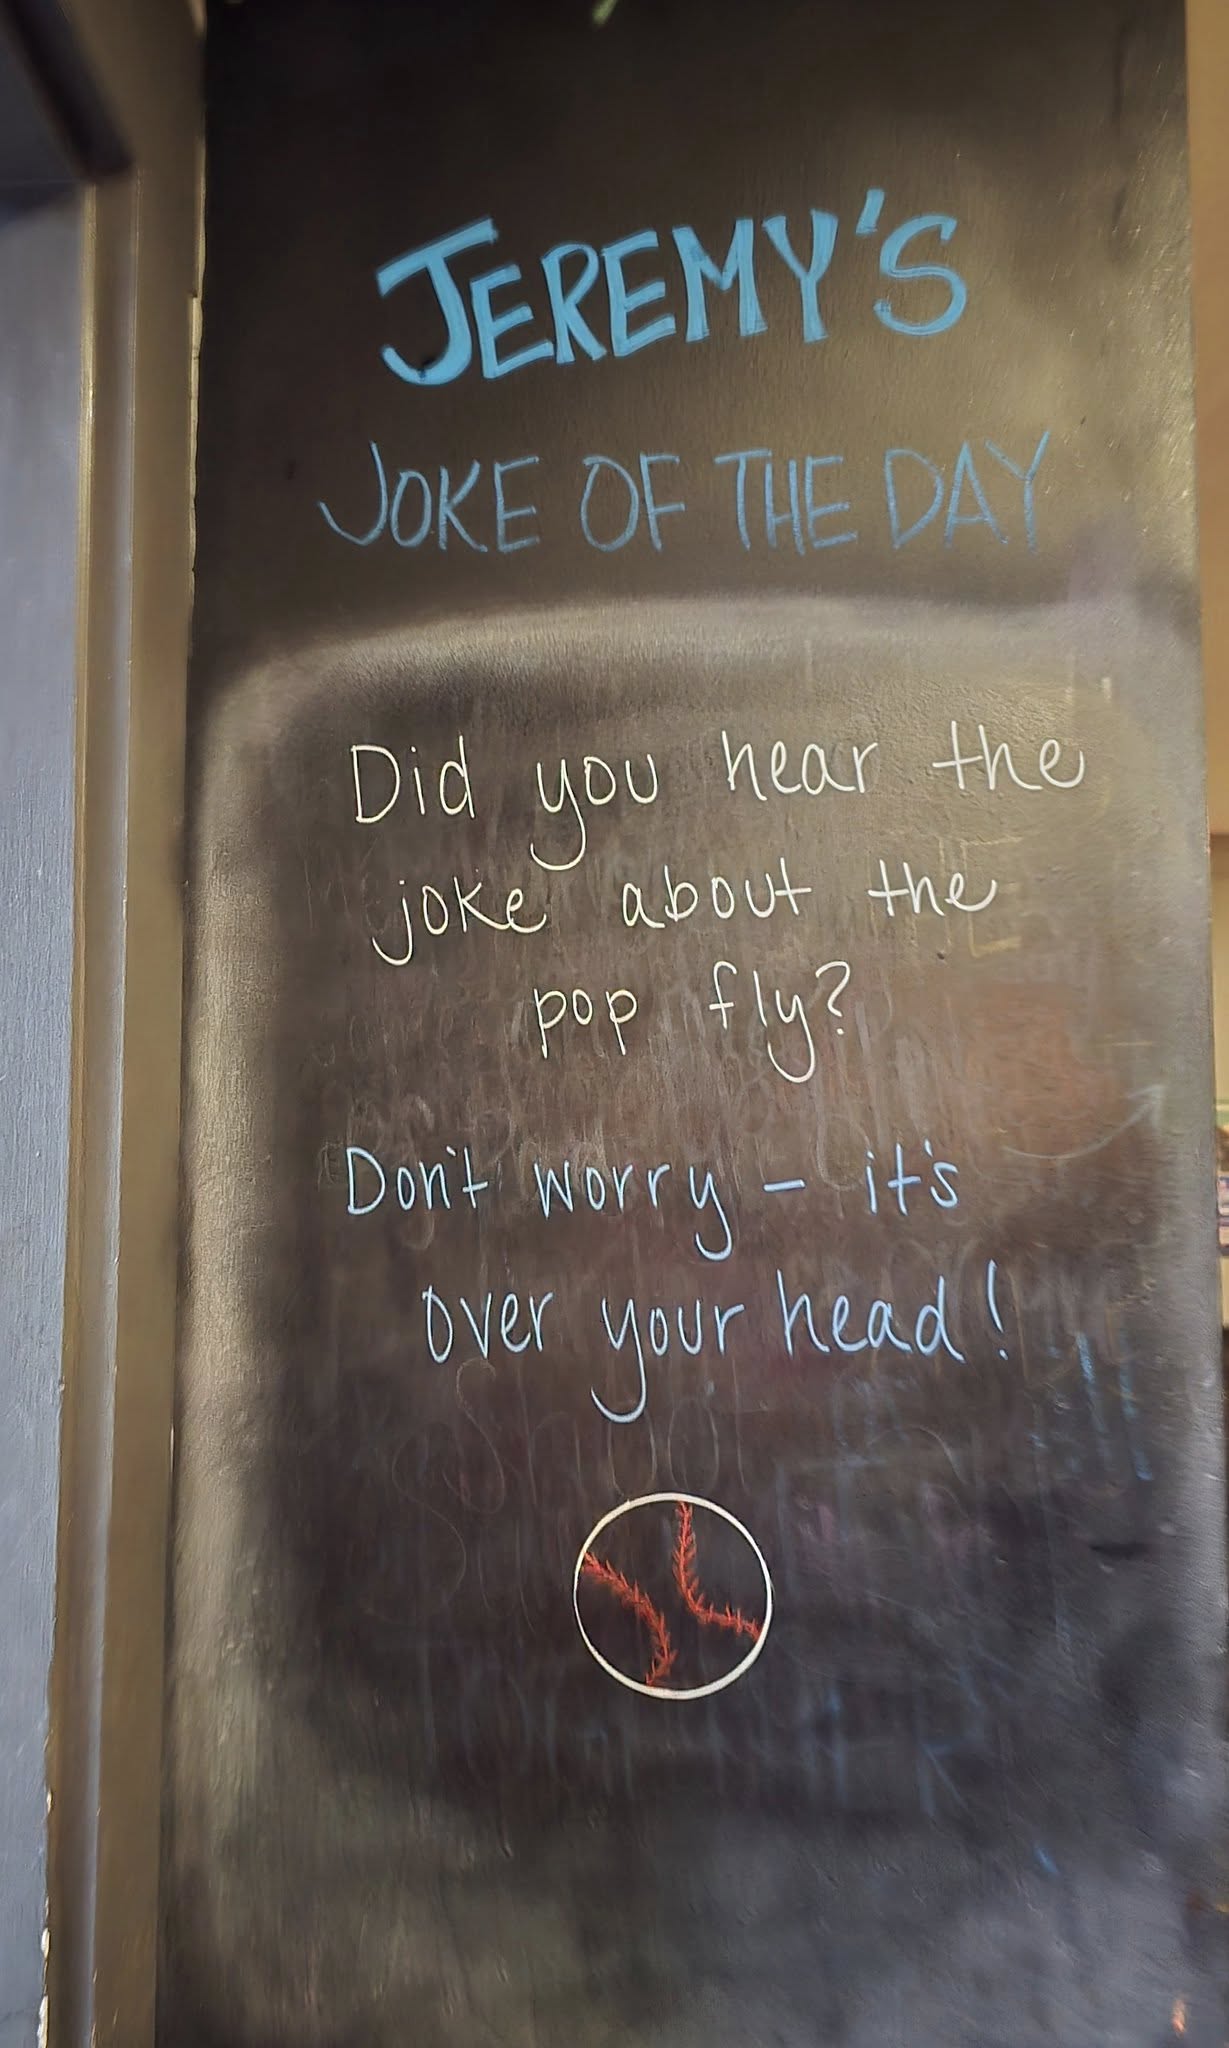 JEREMY'S
JOKE OF THE DAY
Did you hear the
joke about the
pop fly?
Don't worry - it's
over your head!